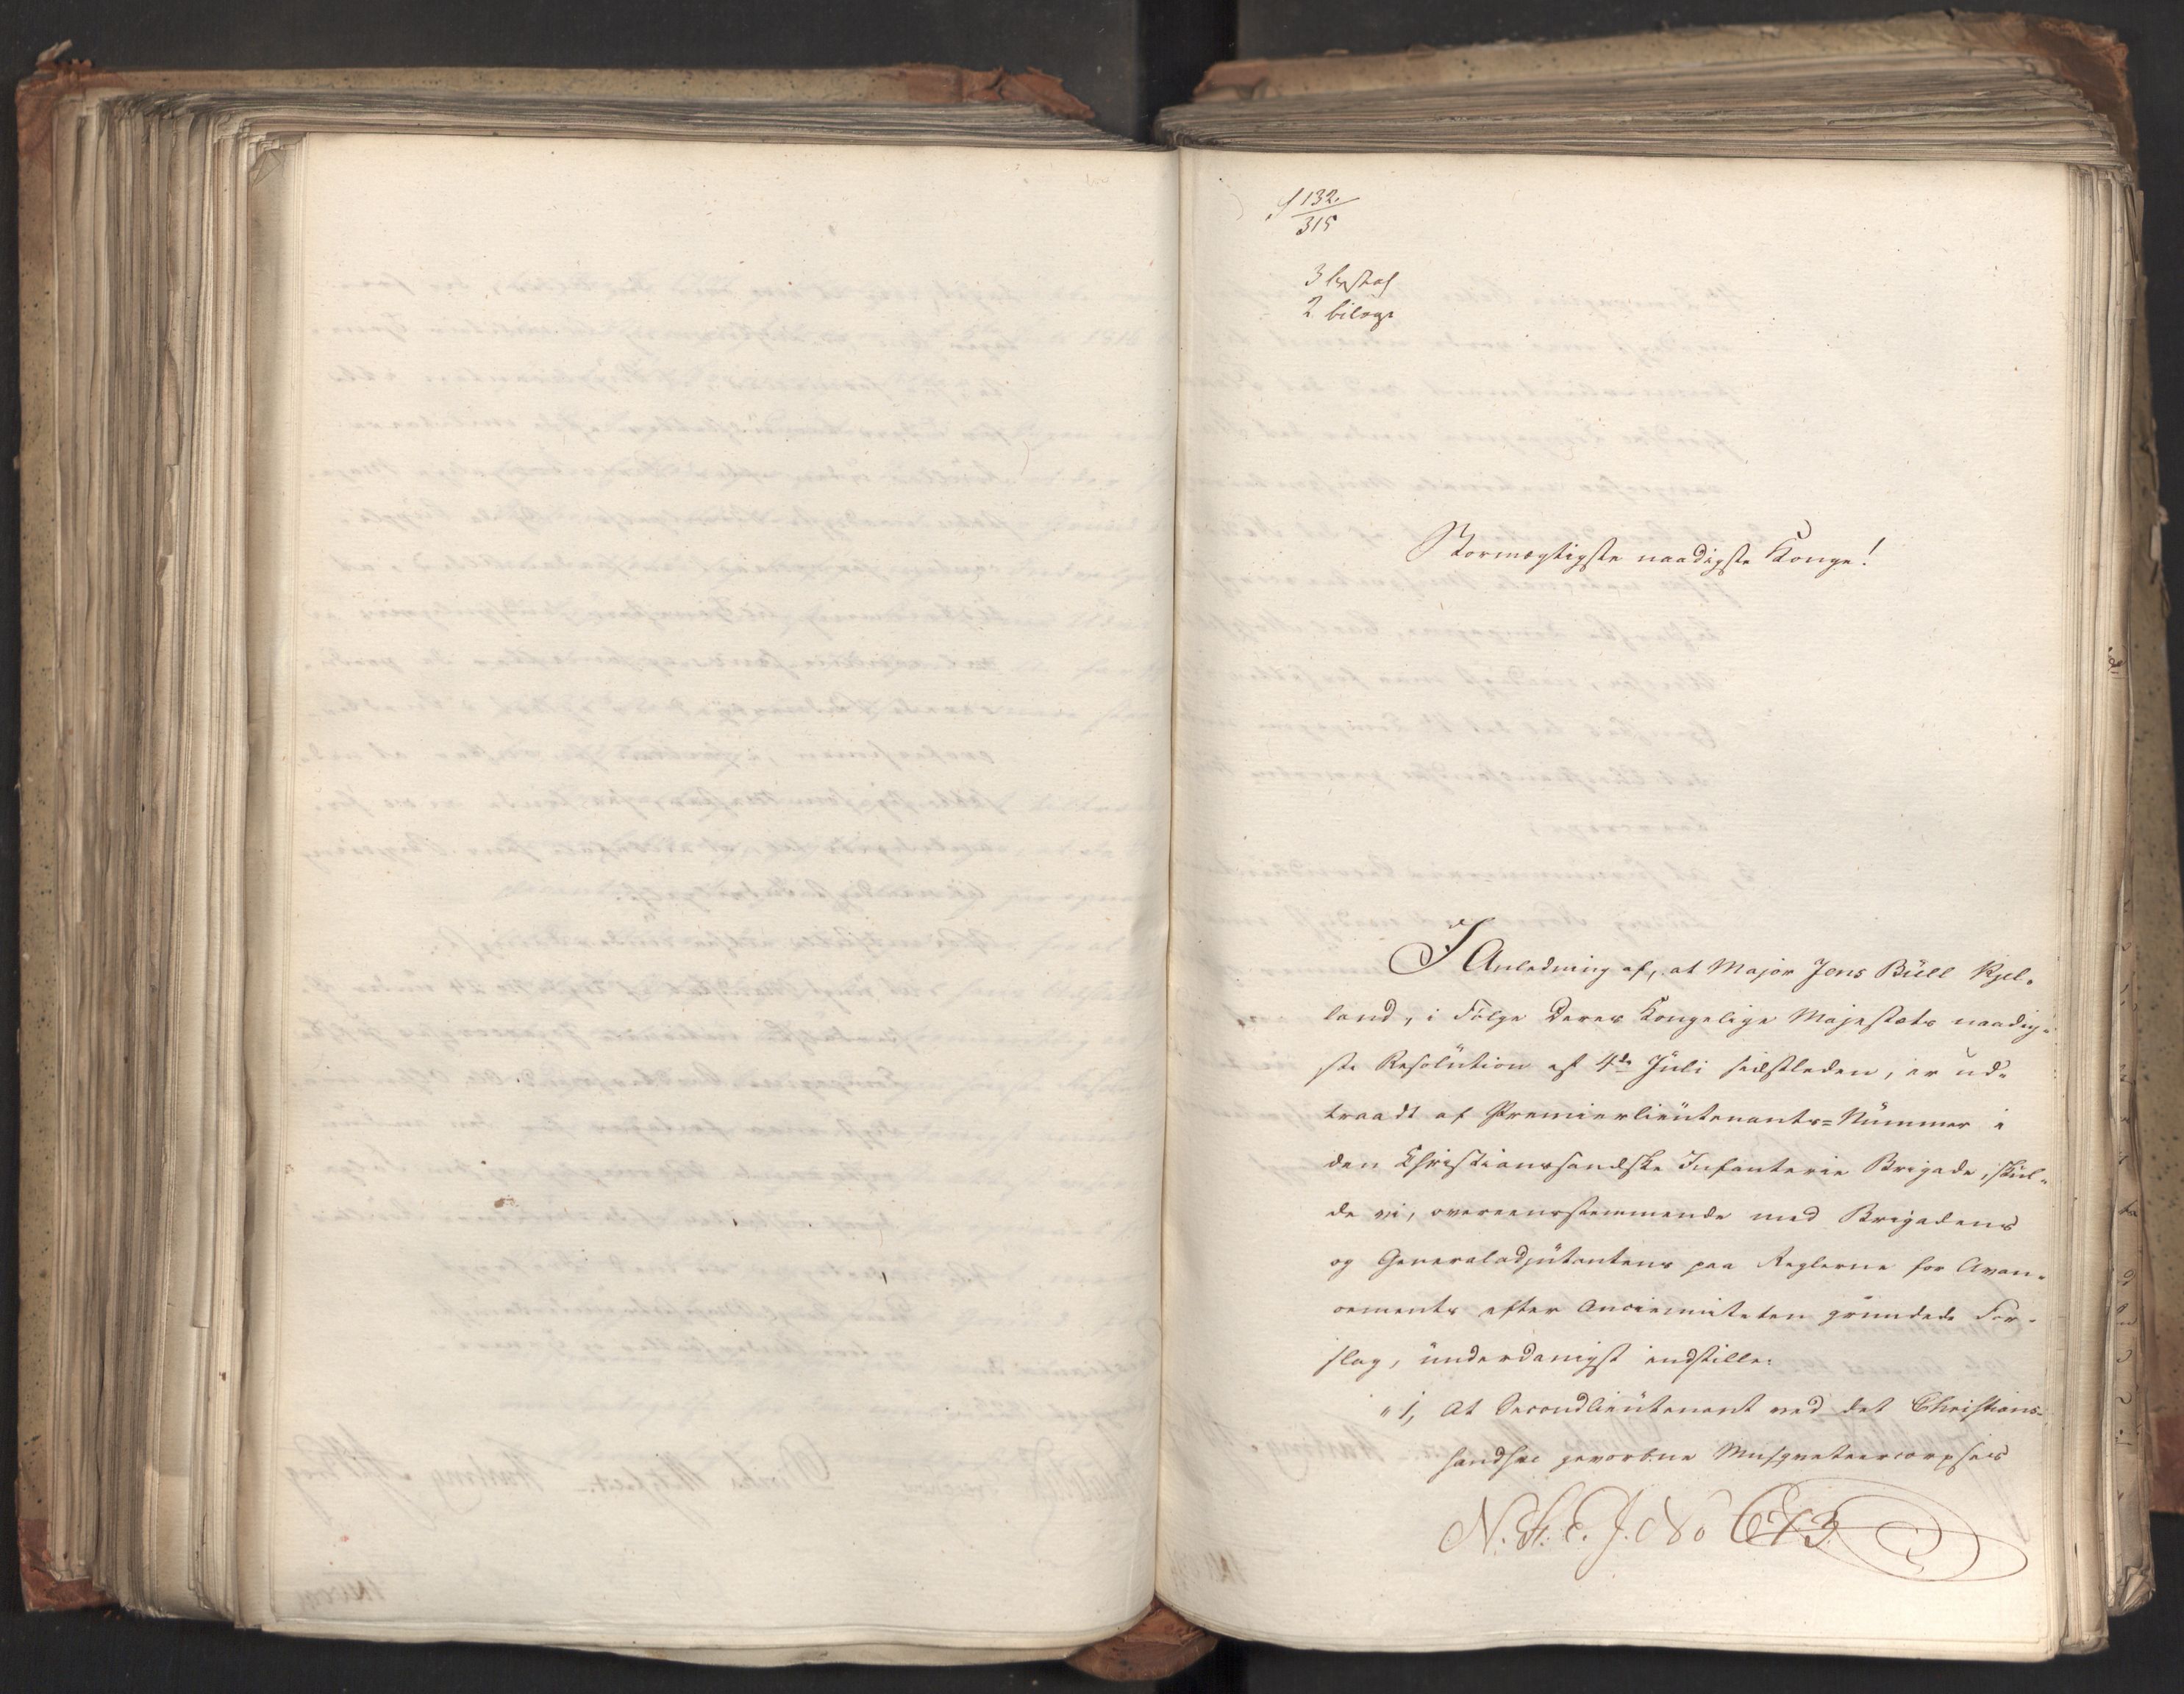 132.
315
3 bestal
2 bilage
Stormægtigste naadigste Konge!
I Anledning af, at Major Jens Büll Kjel-
land, i Følge Deres Kongelige Majestæts naadig-
ste Resolution af 4de Juli sidstleden, er ud-
traadt af Premierlieutenants-Nummer i
den Christianssandske Infanterie Brigade, skul-
de vi, overeensstemmende med Brigadens
og Generaladjutantens paa Reglerne for Avan-
cements efter Ancienniteten grundede For-
slag, underdanigst indstille:
" 1, At Secondlieutenant ved det Christians-
sandske gevorbne Musqueteercorpses
N. No 613